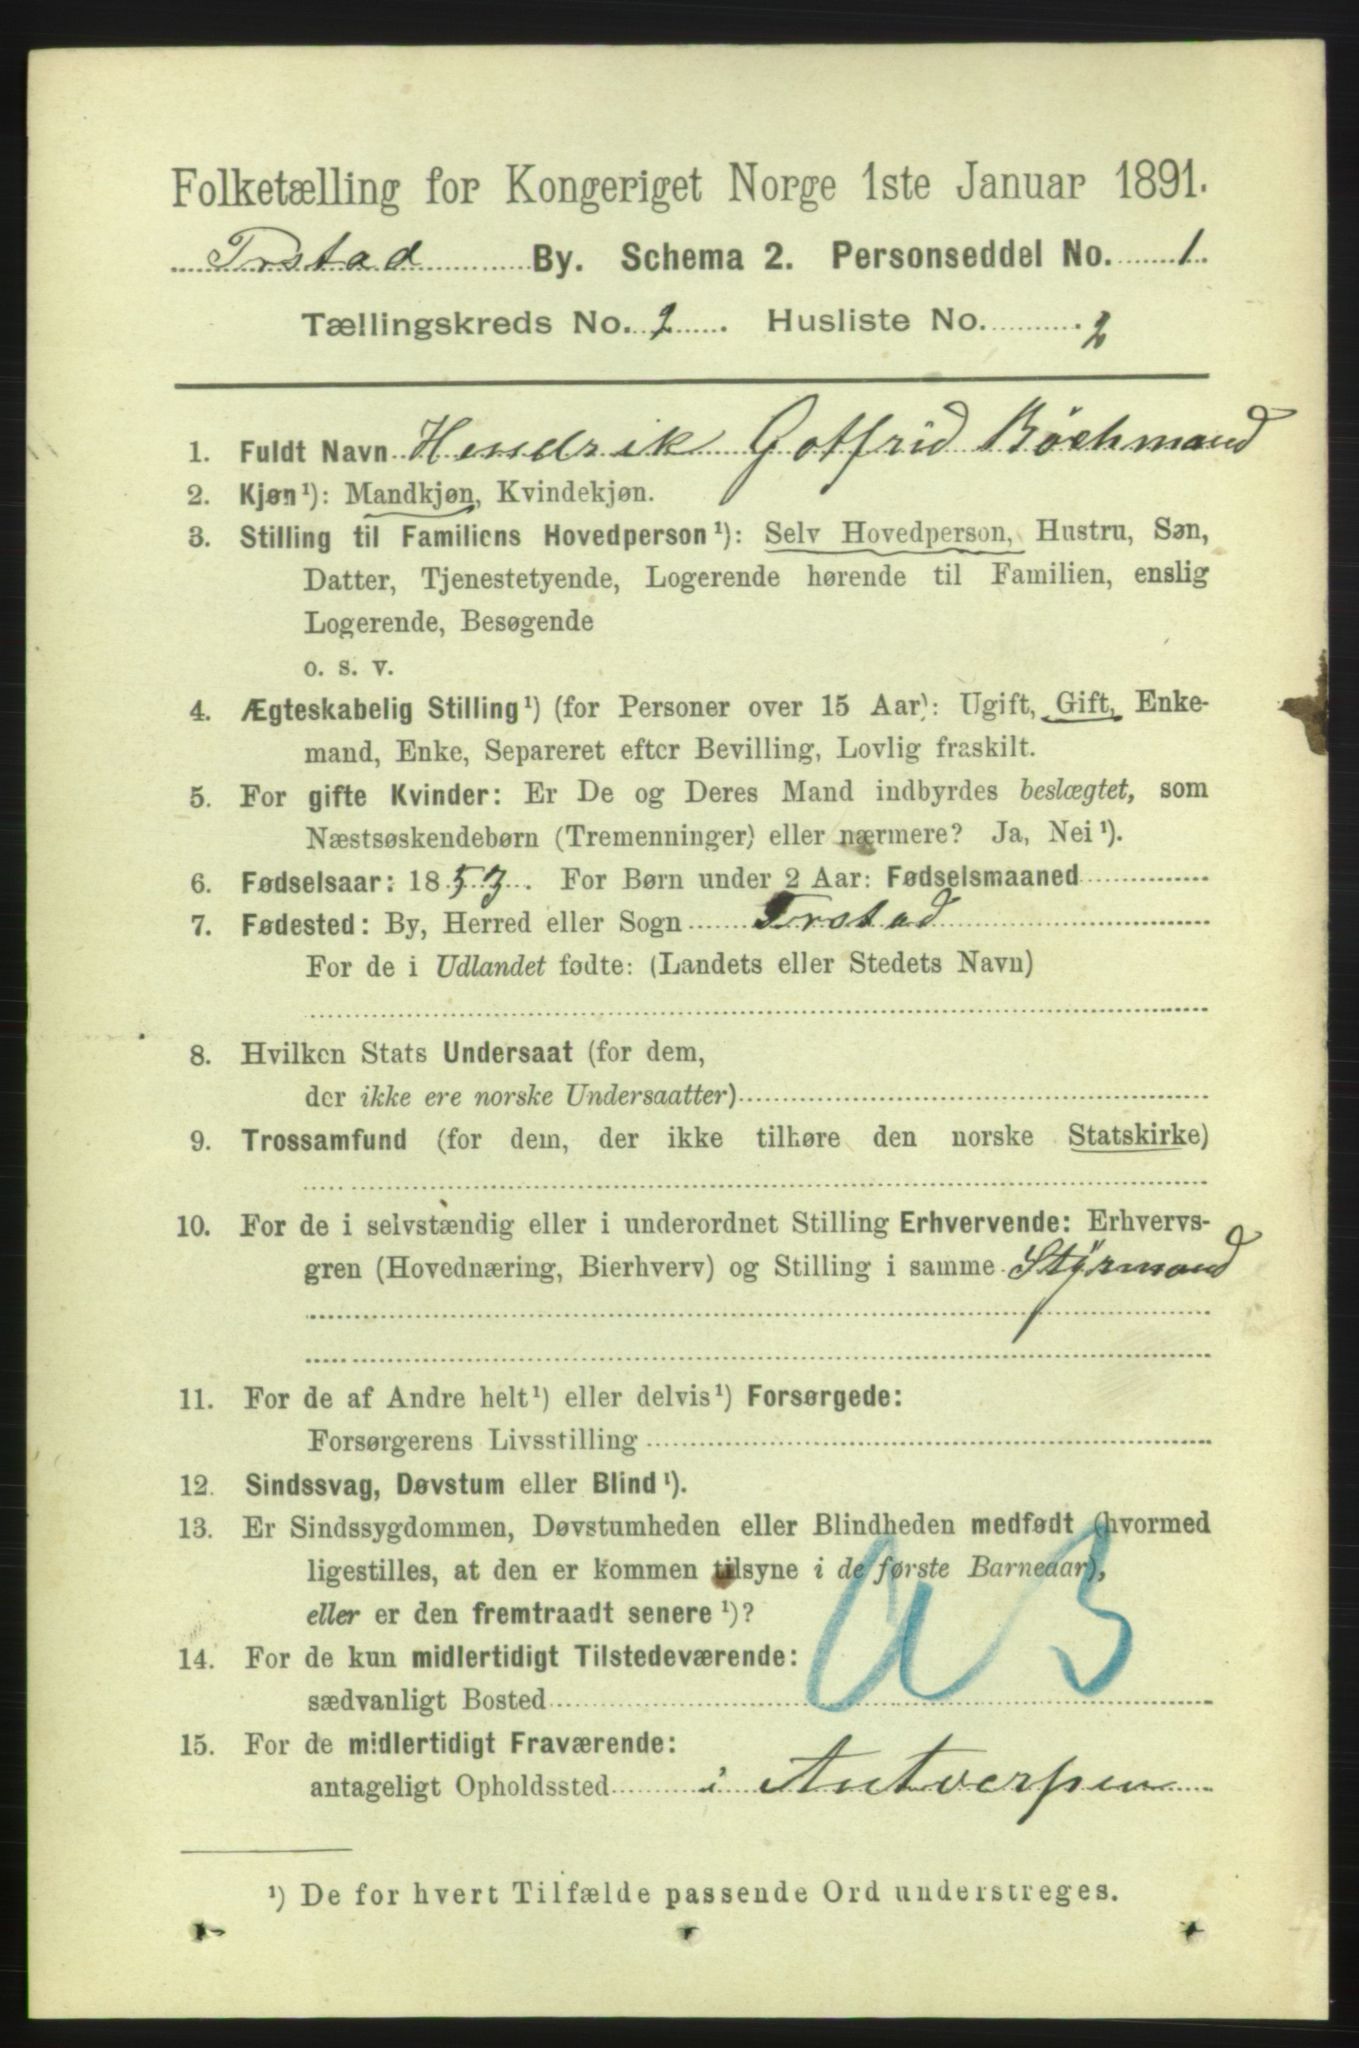 Folketælling for Kongeriget Norge 1ste Januar 1891.
Frstad By. Schema 2. Personseddel No. 1
Tællingskreds No. 2. Husliste No. 2
1. Fuldt Navn Hendrik Gotfrid Böchmand
2. Kjøn¹): Mandkjøn, Kvindekjøn.
3. Stilling til Familiens Hovedperson¹): Selv Hovedperson, Hustru, Søn,
Datter, Tjenestetyende, Logerende hørende til Familien, enslig
Logerende, Besøgende
o. s. v.
4. Ægteskabelig Stilling¹) (for Personer over 15 Aar): Ugift, Gift, Enke-
mand, Enke, Separeret efter Bevilling, Lovlig fraskilt.
5. For gifte Kvinder: Er De og Deres Mand indbyrdes beslægtet, som
Næstsøskendebørn (Tremenninger) eller nærmere? Ja, Nei¹).
6. Fødselsaar: 1853. For Børn under 2 Aar: Fødselsmaaned
7. Fødested: By, Herred eller Sogn Frstad
For de i Udlandet fødte: (Landets eller Stedets Navn)
8. Hvilken Stats Undersaat (for dem,
der ikke ere norske Undersaatter)
9. Trossamfund (for dem, der ikke tilhøre den norske Statskirke)
10. For de i selvstændig eller i underordnet Stilling Erhvervende: Erhvervs-
gren (Hovednæring, Bierhverv) og Stilling i samme Styrmand
11. For de af Andre helt¹) eller delvis¹) Forsørgede:
Forsørgerens Livsstilling
12. Sindssvag, Døvstum eller Blind¹).
13. Er Sindssygdommen, Døvstumheden eller Blindheden medfødt (hvormed
ligestilles, at den er kommen tilsyne i de første Barneaar),
eller er den fremtraadt senere¹)?
14. For de kun midlertidigt Tilstedeværende:
sædvanligt Bosted
15. For de midlertidigt Fraværende:
antageligt Opholdssted i Antverpen
¹) De for hvert Tilfælde passende Ord understreges.